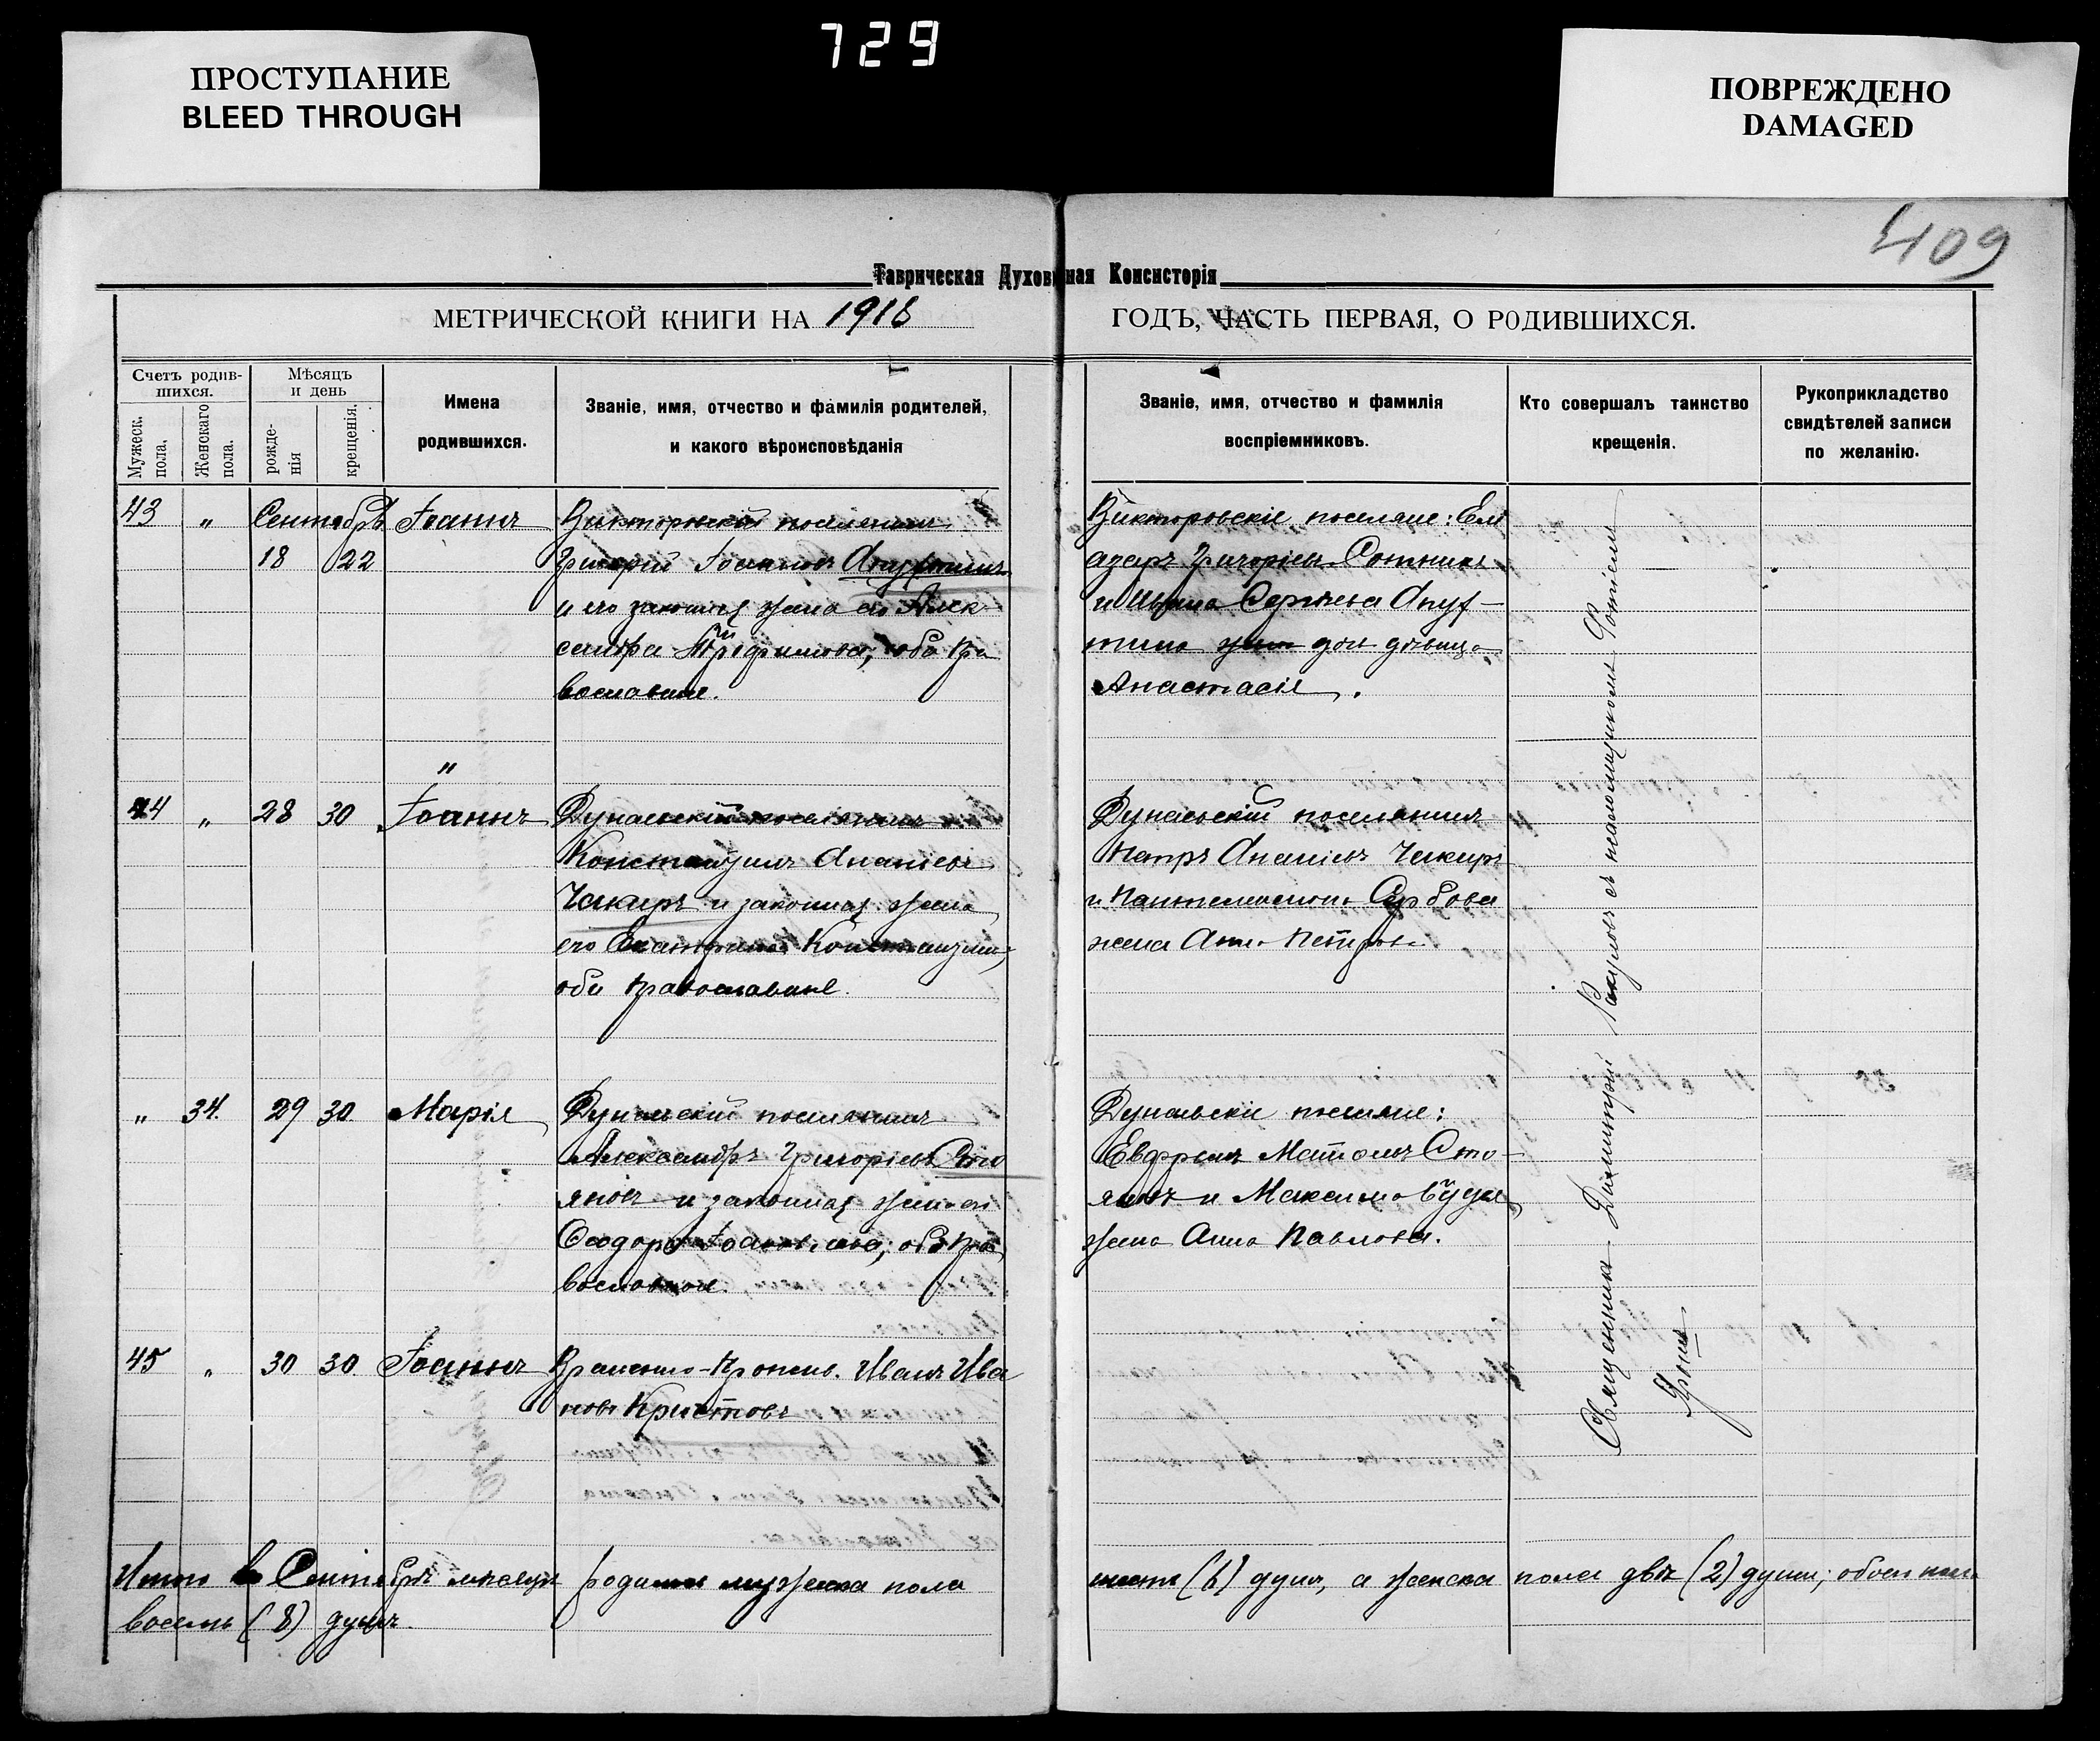 729
ПРОСТУПАНИЕ
BLEED THROUGH
ПОВРЕЖДЕНО
DAMAGED
409
Таврическая Духовная Консисторія
МЕТРИЧЕСКОЙ КНИГИ НА 1916 ГОДЪ, ЧАСТЬ ПЕРВАЯ, О РОДИВШИХСЯ.
Счетъ родив-
шихся.
Мужеск.
пола.
Женскаго
пола.
Мѣсяцъ
и день
рожде-
нія
крещенія.
Имена
родившихся.
Званіе, имя, отчество и фамилія родителей,
и какого вѣроисповѣданія
Званіе, имя, отчество и фамилія
воспріемниковъ.
Кто совершалъ таинство
крещенія.
Рукоприкладство
свидѣтелей записи
по желанію.
43 " Сентябрь Іоаннъ
18 22
Григорій Іоанновъ
и его законная жена его Алек-
сандра Трофимова, оба пра
вославные.
Викторовскіе поселяне: Ели
азаръ Григорьевъ Сотникъ
и Сергѣева Апух-
тина дѣвица
Анастасія.
"
44 " 28 30 Іоаннъ
Дунаевскій поселянинъ
Константинъ Ананіевъ
Чакиръ и законная жена
его Екатерина
оба православные.
Дунаевскій поселянинъ
Петръ Ананіевъ Чакиръ
и
жена Анна Петрова
" 34. 29 30. Марія
Дунаевскій поселянинъ
Александръ Григорьевъ Сто
яновъ и законная жена его
Ѳеодора оба пра
вославные.
Дунаевскіе поселяне:
Сто-
яновъ и Максима
жена Анна Павлова.
45 " 30 30. Іоаннъ
Временно-прожив. Иванъ Ива
новъ Кристовъ
Священникъ Димитрій съ псаломщикомъ
Итого въ Сентябрѣ мѣсяцѣ родилось мужеска пола шесть (6) душъ, а женска пола двѣ (2) души; обоего пола
восемь (8) душъ.